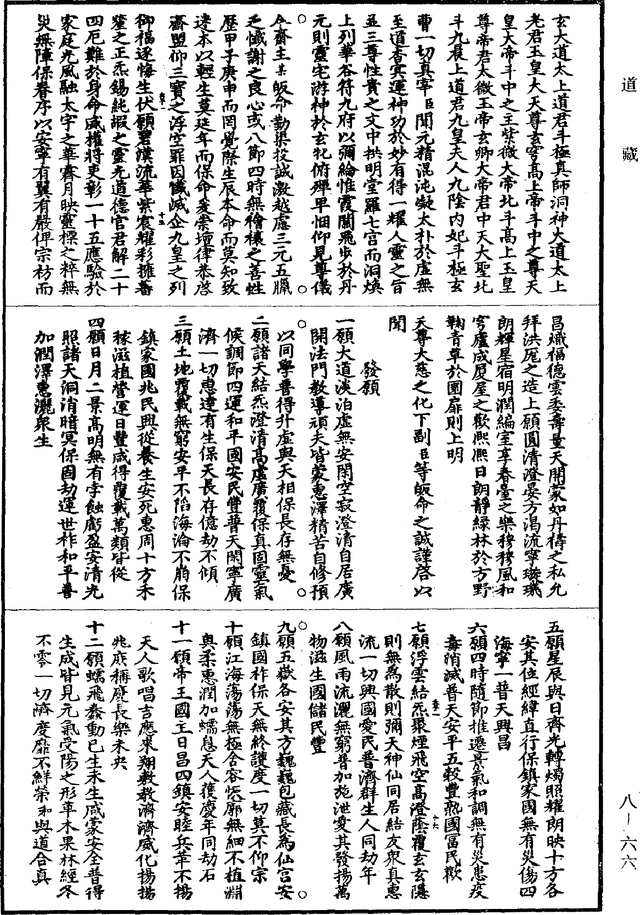 道藏
玄大道太上道君斗極真師洞神大道太上
老君玉皇大天尊玄穹高上帝斗中之尊天
皇大帝斗中之主紫微大帝北斗高上玉皇
尊帝君太微玉帝玄卿大帝君中天大聖北
斗九晨上道君九皇夫人九陰內妃斗極玄
曹一切真宰臣聞元精混沌凝太朴於虛無
至道杳冥運神功於妙有得一耀人靈之旨
函三尊性貴之文中拱明堂羅七宮而洞煥
上列華谷符九府以彌綸惟霞闕飛步於丹
元則靈宅游神於玄牝俯殫卑悃仰見尊儀
今齋主某皈命勤渠投誠激越慮三元五臘
乏懺謝之良心或八節四時無禬禳之善性
歷甲子庚申而罔覺際生辰本命而莫知致
逮本以輕生莫延年而保命爰崇壇律恭啓
齋盟仰三寶之浮空罪因懺滅企九皇之列
御福逐悔生伏願碧漢流華紫宸耀彩擁蕃
釐之正炁錫純嘏之靈光道德官君解二十
四厄難於身命威權將吏彰一十五應驗於
家庭九風融太宇之華霽月映靈標之粹無
災無障保眷序以安寧有翼有嚴俾宗祊而
昌熾福德雲委壽量天開蒙如丹禱之私允
拜洪庬之造上願圓清澄晏方渴流寧璇璣
朗輝星宿明潤編室享春臺之樂穆穆風和
穹廬成厦屋之歡熙熙日朗靜綠林於方野
鞠青草於圜扉則上明
天尊大慈之化下副臣等皈命之誠謹啓以
聞
發願
一願大道淡泊虛無安閑空寂澄清自居廣
開法門教導頑夫皆蒙惠澤精苦自修預
以同學普得升虛與天相保長存無憂
二願諸天結炁澄清高虛廣覆保真固靈氣
候調節四運和平國安民豐普天閑寧廣
濟一切惠逮有生保天長存億劫不傾
三願土地覆載無窮安平不陷海淪不崩保
鎮家國兆民興從養生安死惠周十方禾
稼滋植營運日豐咸得覆載萬類皆從
四願日月二景高明無有孛蝕虧盈安清光
照諸天洞消暗冥保固劫運世祚和平善
加潤澤惠灑衆生
五願星辰與日齊光轉燭照耀朗映十方各
安其位經緯直行保鎮家國無有災傷四
海寧一普天興昌
六願四時隨節推遷景氣和調無有災患疫
毒消滅普天安平五穀豐熟國富民歡
七願浮雲結炁聚煙飛空高澄蔭覆玄玄隱
則無為散則彌天神仙同居結友衆真惠
流一切興國愛民普濟群生人同劫年
八願風雨流灑無窮普加施泄愛其發揚萬
物滋生國儲民豐
九願五嶽各安其方巍巍包藏長為仙宮安
鎮國祚保天無終護度一切莫不仰宗
十願江海蕩蕩無極含容恢廓無細不植淵
奧柔惠潤加蠕息天人獲慶年同劫石
十一願帝王國主日昌四鎮安睦兵革不揚
天人歌唱吉應來翔教敎濟濟威化揚揚
兆庶稱慶長樂未央
十二願蠕飛蠢動已生未生咸蒙安全普得
生成皆見元氣受陽之形草木果林經冬
不零一切濟度靡不鮮榮和與道合真
八-六六